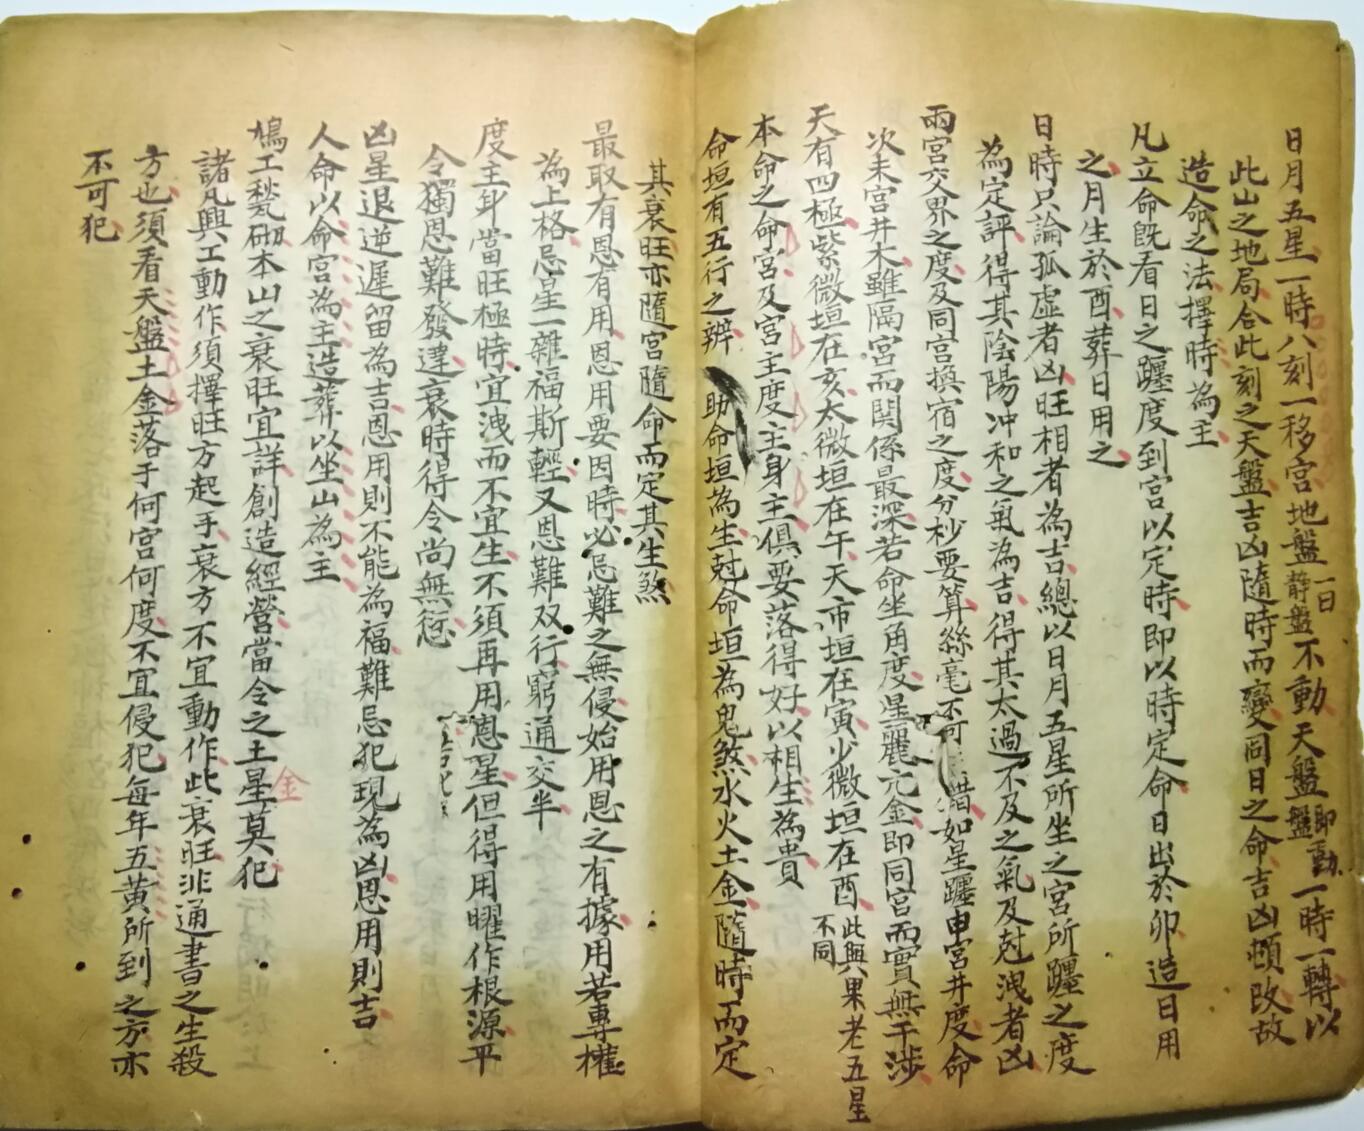 日月五星一時八刻一移宮地盤一日靜盤不動天盤即動盤一時一轉以
此山之地局合此刻之天盤吉凶隨時而變同日之命吉凶頓改故
造命之法擇時為主
凡立命既看日之躔度到宮以定時即以時定命日出於卯造日用
之月生於酉葬日用之
日時只論孤虛者凶旺相者為吉總以日月五星所坐之宮所躔之度
為定評得其陰陽冲和之氣為吉得其太過不及之氣及尅洩者凶
兩宮交界之度及同宮換宿之度分杪要算絲毫不可錯如星躔申宮井度命
次未宮井木雖隔宮而関係最深若命坐角度星麗亢金即同宮而實無干涉
天有四極紫微垣在亥太微垣在午天市垣在寅少微垣在酉此與果老五星不同
本命之命宮及宮主度主身主俱要落得好以相生為貴
命垣有五行之辨助命垣為生尅命垣為鬼煞水火土金隨時而定
其衰旺亦隨宮隨命而定其生煞
最取有恩有用恩用要因時必忌難之無侵始用恩之有據用若專權
為上格忌星一雜福斯輕又恩難双行窮通交半
度主身當旺極時宜洩而不宜生不須再用恩星但得用曜作根源平
令獨恩難發達衰時得令尚無愆
凶星退逆遲留為吉恩用則不能為福難忌犯現為凶恩用則吉
人命以命宮為主造葬以坐山為主
鳩工甃砌本山之衰旺宜詳創造經營當令之土星莫犯
金
諸凡興工動作須擇旺方起手衰方不宜動作此衰旺非通書之生殺
方也須看天盤土金落于何宮何度不宜侵犯每年五黃所到之方亦
不可犯